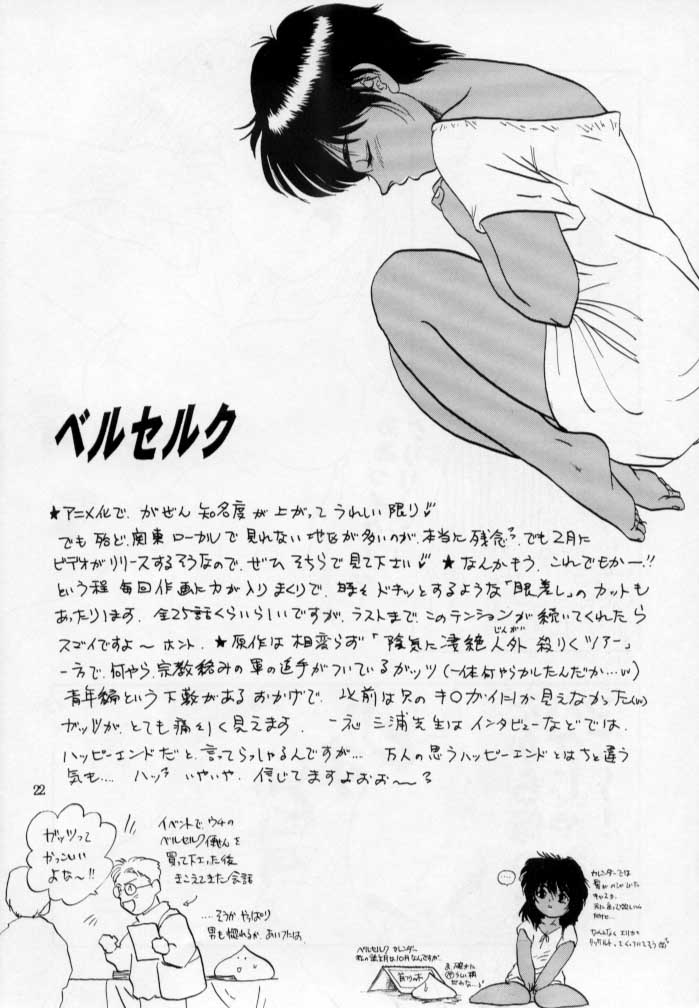 ベルセルク
★アニメ化で、がぜん 知名度が上がって うれしい限り
でも 殆ど、関東 ローカルで 見れない 地区が 多いのが、本当に 残念、でも 2月に
ビデオがリリースするそうなので、ぜひ そちらで 見て下さい ★ なんかもう、これでもかー!!
という程 毎回 作画に 力が 入りまくりで、時々 ドキッとするような「眼差し」の カットも
あったりします。全25話くらいらしいですが、ラストまで、このテンションが 続いてくれたら
スゴイですよ〜 ホント。 ★ 原作は 相変らず「陰気に 凄絶 人外 殺りく ツアー」
じんがい
一方で、何やら、宗教絡みの 軍の 追手が ついているガッツ (一体何やらかしたんだか…
青年編という 下敷が ある おかげで、以前は 只の キ○ガイにしか 見えなかった
ガッツが、とても 痛々しく 見えます。 一応 三浦先生は インタビューなどでは、
ハッピーエンドだと、言ってらっしゃるんですが… 万人の 思うハッピーエンド とは ちと 違う
気も…. ハッ いやいや、信じてますよおぉ〜
22
ガッツって
かっこいい
よな〜!!
イベントで、ウチの
ベルセルク 本を
買って下さった後
きこえてきた/会話
….そうか やっぱり
男も 惚れるか、あいつは、
ベルセルク カレンダー
私の誕生月は10月なんですが、
…
カレンダーでは
髪が のびていた
キャスカ。